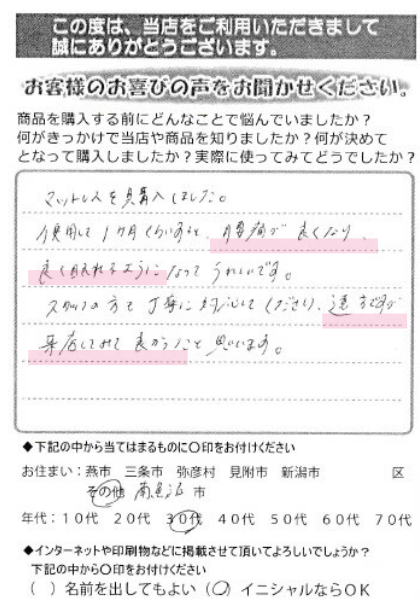 この度は、当店をご利用いただきまして
誠にありがとうございます。
お客様のお喜びの声をお聞かせください。
商品を購入する前にどんなことで悩んでいましたか?
何がきっかけで当店や商品を知りましたか?何が決めて
となって購入しましたか?実際に使ってみてどうでしたか?
マットレスを購入しました。
使用して1ヶ月くらいすると、腰痛が良くなり、
良く眠れるようになってうれしいです。
スタッフの方も丁寧に対応してくださり、遠方ですが
来店してみて良かったと思います。
◆下記の中から当てはまるものに〇印をお付けください
お住まい:燕市 三条市 弥彦村 見附市 新潟市 区
その他 南魚沼 市
年代:10代 20代 30代 40代 50代 60代 70代
◆インターネットや印刷物などに掲載させて頂いてよろしいでしょうか?
下記の中から〇印をお付けください
( )名前を出してもよい (〇)イニシャルならOK